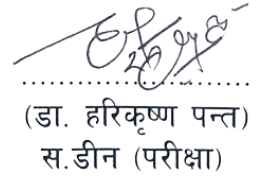 ....................................
(डा. हरिकृष्ण पन्त)
स.डीन (परीक्षा)